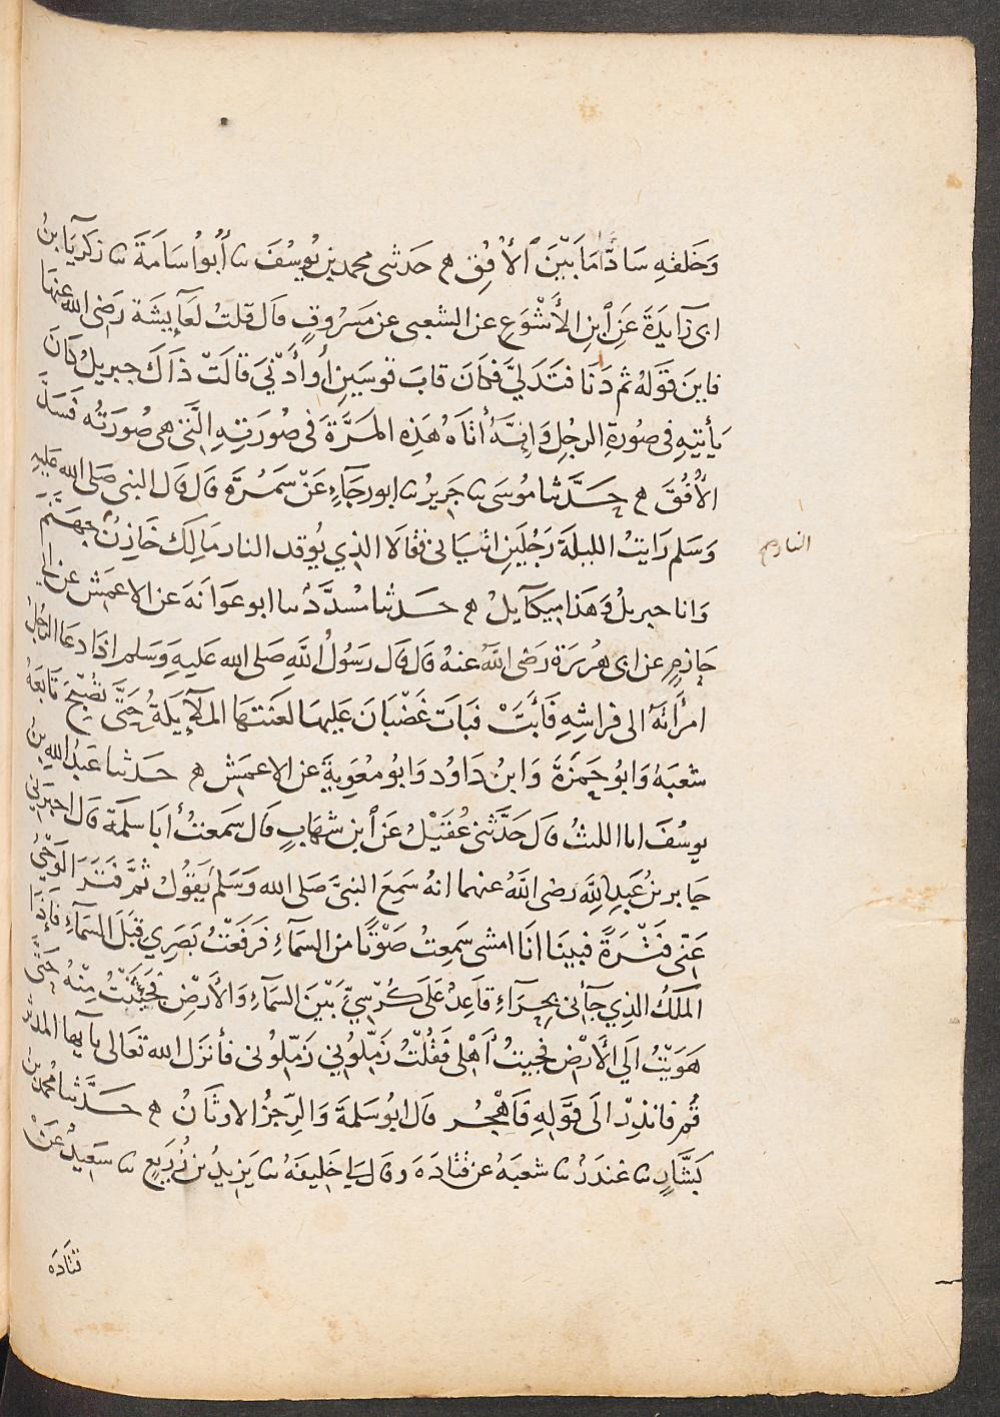 وَخَلقهِ سَادًّا مَا بَيْنَ ٱلأُفُقِ ھ حَدثنى محمد بن يُوسُفَ نا أَبُواُسَامَةَ نا زكريَا بنُ
ابى زآيدَةَ عَنِ ٱبنِ الأَشْوَعِ عن الشعبى عن مَسْروُقٍ قال قلتُ لعَآيِشَة رَضى الله عنها
فاينَ قَولهُ ثم دَنَا فتدَلىَّ فكَانَ قابَ قوسَينِ أَو أَدْنىَ قالَتْ ذَاكَ جبريلُ كانَ
يَأتيهِ فى صورةِ الرجُلِ وَاِنَّهُ أتَاهُ هَذِهِ المرَّةَ فى صُورَتِهِ الَّتى هى صُورَتُه فَسَدَّ
الأُفُقَ ھ حَدَّثنا مُوسَى نا جَريرُ نا ابورجَآءِ عَنْ سَمُرَةَ قال قال النبى صَلى الله عَليهِ
وَسَلم رَايتُ الليلةَ رَجُلَينِ اتيَانى فقالَا الذي يُوقد النار مَالِك خَازِنُ جهَنَّمَ
النار صح
وَانا جبريلُ وَهَذَا مِيكآيلُ ھ حَدثنا مُسدَّدُ نا ابو عَوَانَهَ عن الاعمَش عن ابي
حَازِمٍ عن ابى هُريرَة رَضى اللهُ عنهُ قال قال رَسُولُ اللهِ صَلى الله عَليهِ وَسَلم اذَا دعَا الرَّجُلُ
امرأتَهُ الى فراشِهِ فَأَبَتْ فبَاتَ غَضْبَانَ عَليهَا لعَنتهَا المَلآيِكةُ حَتَّى تصْبِحَ تَابَعَهُ
شعبَهُ وَابُو حَمزَةَ وَابنُ دَاوُد وَابُو مُعَوِيةَ عن الاعمَش ھ حَدثنا عَبدُ الله بنُ
يوسُفَ انا الليثُ قال حَدَّثنى عُقَيْلُ عَن ٱبن شهَابٍ قال سَمعتُ أبَا سلمَة قال اخبرَنى
جَابر بنُ عَبدِ اللهِ رضى اللهُ عنهما انهُ سَمِعَ النبىَّ صَلى الله وَسَلم يَقوُلُ ثمَّ فتَرَ الوَحْىُ
عَنّى فَتْرَةً فبينَا انَا امشى سَمِعتُ صَوْتًا من السمَآءِ فرَفعْتُ بَصَرِي قِبَلَ السمَآءِ فاِذَا
الملَكُ الذِي جآنى بحِرآءِ قاَعِدُ عَلَى كُرْسِيٍّ بَيْنَ السمَاءِ وَالأَرْضِ فجُئِثتُ مِنْهُ حَتَّى
هَوَيْتُ اِلَي الأَرْضِ فجِيتُ أَهْلى فَقُلْتُ زَمِّلُونِي زَمّلوُنى فأنزَل الله تعَالى يآيها المدثر
قُم فانذِرْ الَى قَوْلِهِ فَاهْجُر قال ابُو سَلمَةَ وَالرِّجزُ الاوثَانُ ھ حَدَّثنا مُحمدُ بنُ
بَشَّارٍ نا غندَرُ نا شعبَهُ عن قتَادَهَ وقال لي خَليفَهُ نا يَزِيدُ بن زُرَيعٍ نا سَعِيدُ عَنْ
قتَادَه